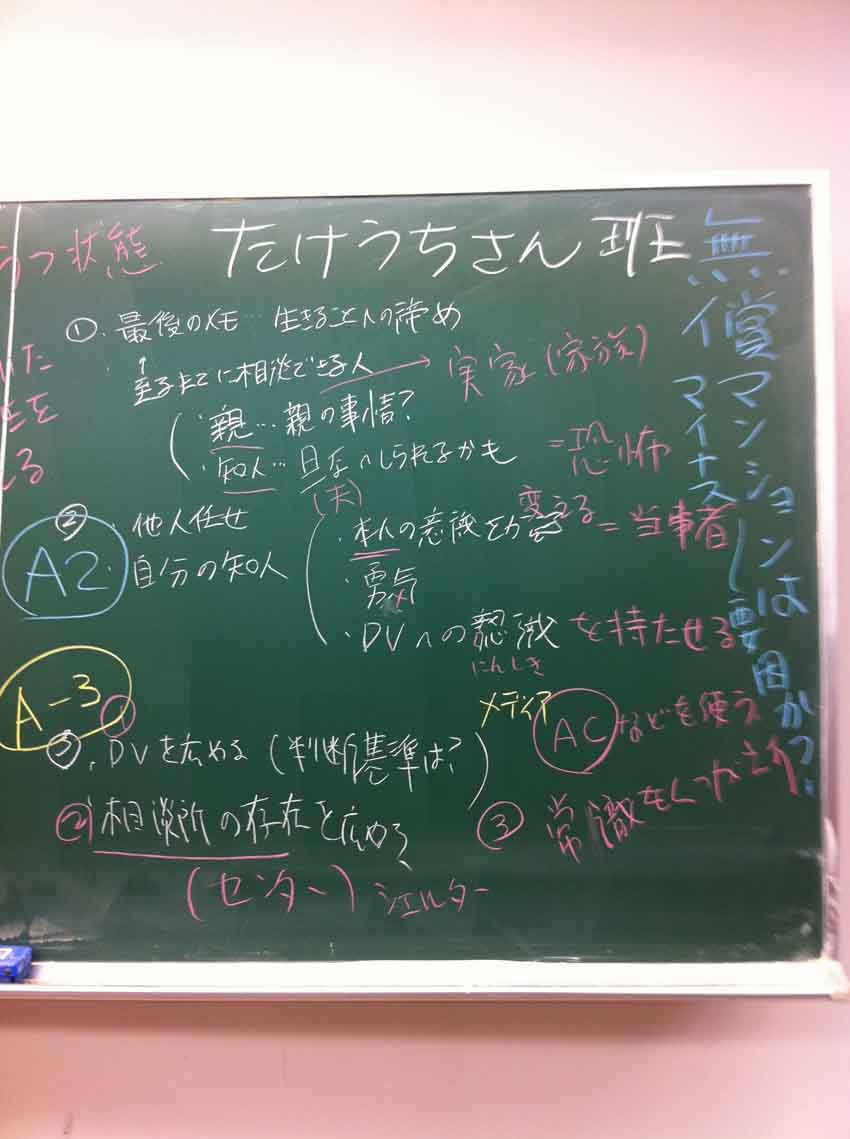 うつ状態
いた
を
る
たけうちさん班
①・最後のメモ…生きることへの諦め
↑
・至るまでに相談できる人 → 実家(家族)
・親…親の事情?
・知人…旦那へしられるかも =恐怖
(夫)
② ・他人任せ
A2 ・自分の知人
・本人の意識を変える = 当事者
・勇気
・DVへの認識を持たせる
にんしき
A-3
①
③、DVを広める(判断基準は?)
メディア
ACなどを使え
②相談所の存在を広める
(センター)シェルター
③ 常識をくつがえす
無償マンションは
マイナス
要因かつ